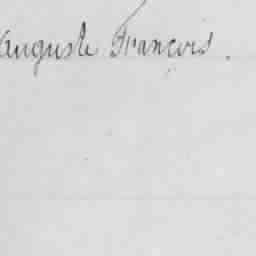 Auguste François.